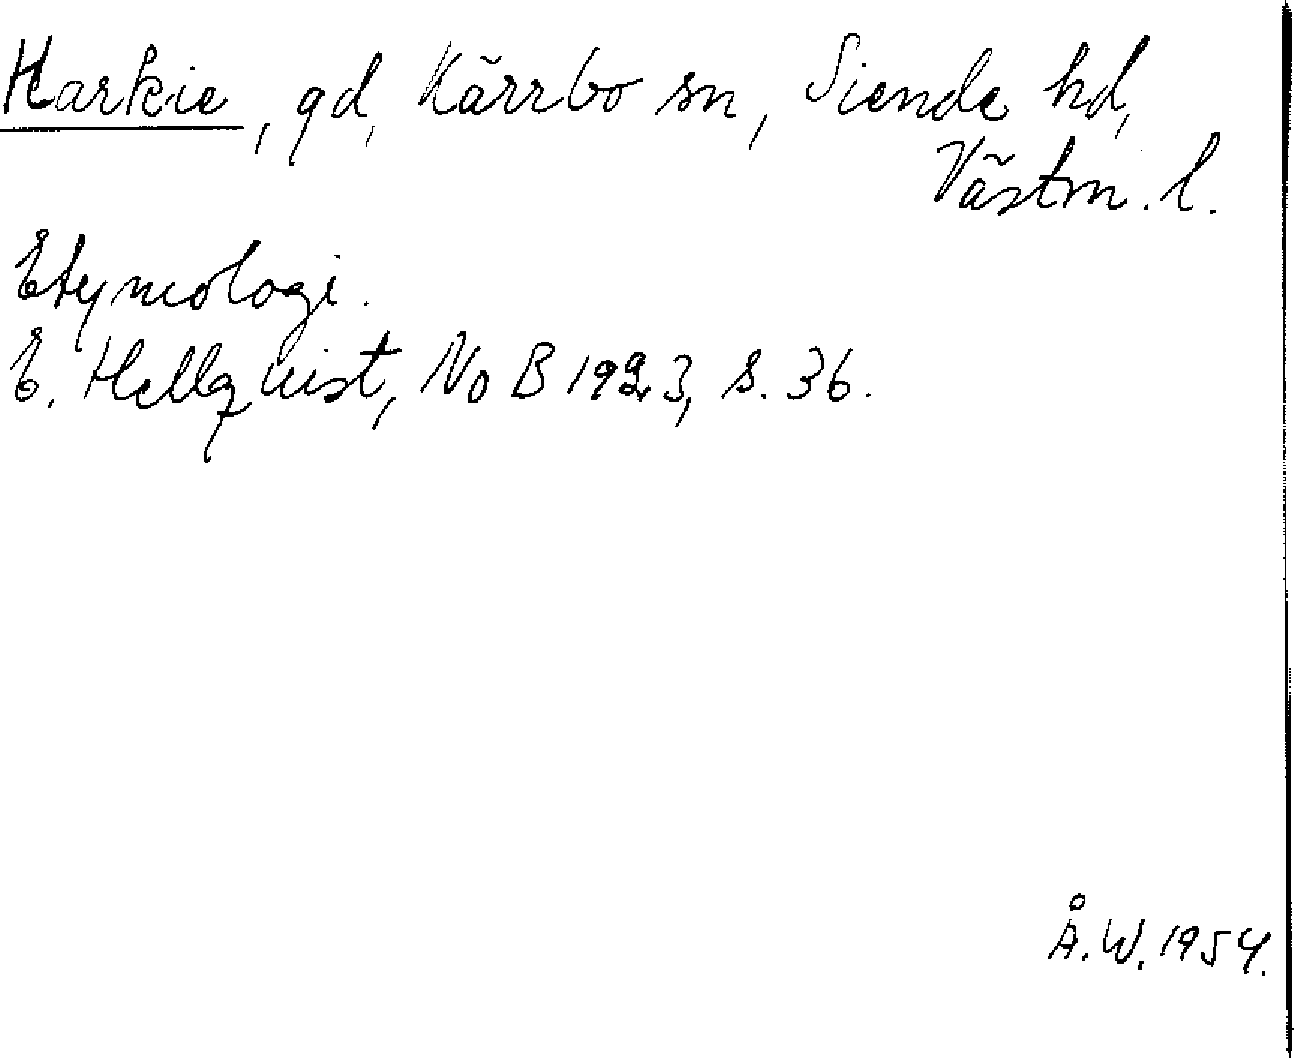 Harkie, gd, Kärrbo sn, Siende hd,
Västm. l.
Etymologi.
E. Hellquist, NoB 1923, s. 36.
Å.W. 1954.